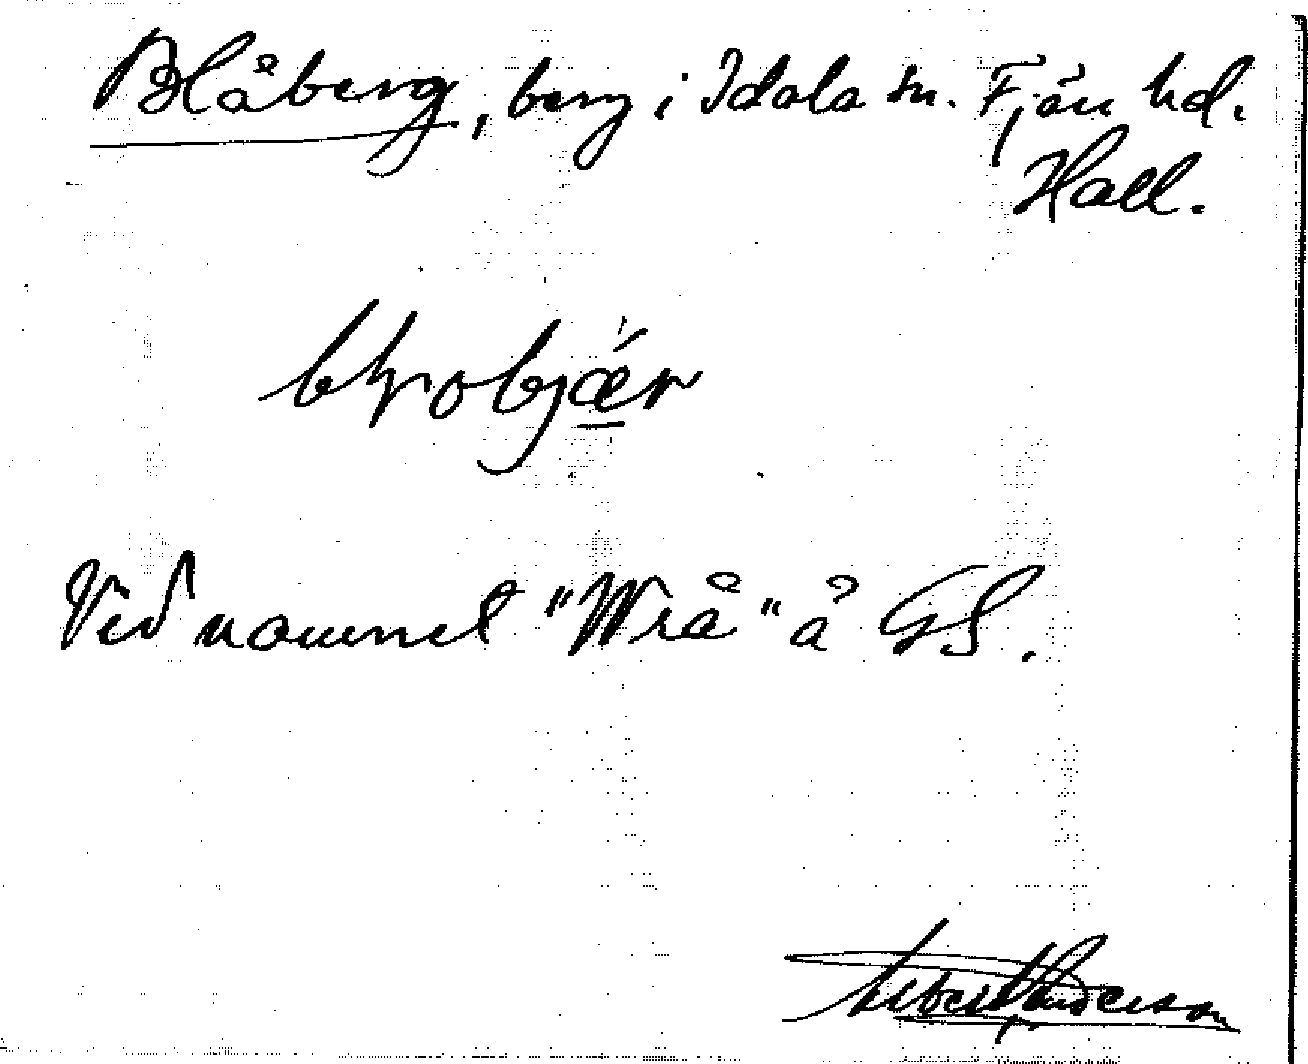 Blåberg, berg i Idala sn. Fjäre hd.
Hall.
Vid namnet "Wrå" å GS.